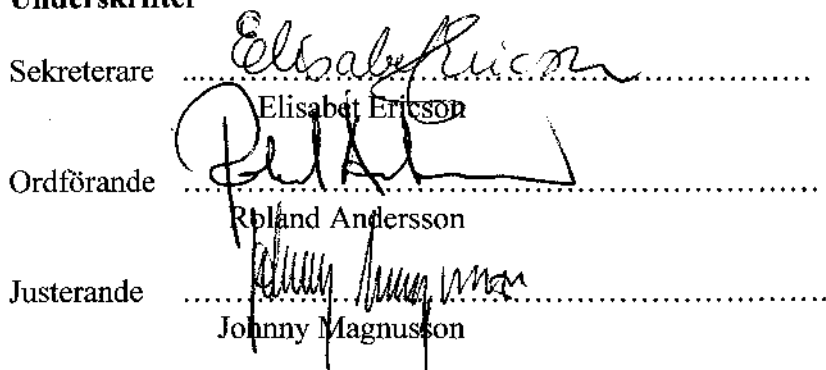 Underskrifter
Sekreterare ....Elisabet Ericson....
Elisabet Ericson
Ordförande ....
Roland Andersson
Justerande ....
Johnny Magnusson